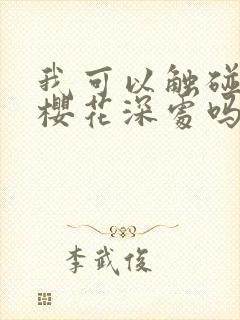 我可以触碰
樱花深处吗
李武俊